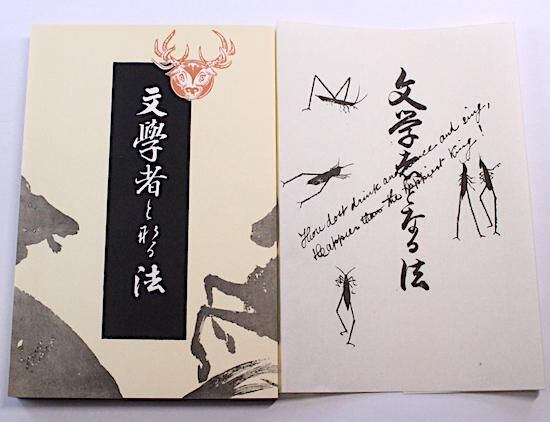 文學者となる法
文学者となる法
Thou dost drink and dance and sing,
Happier than the happiest King!